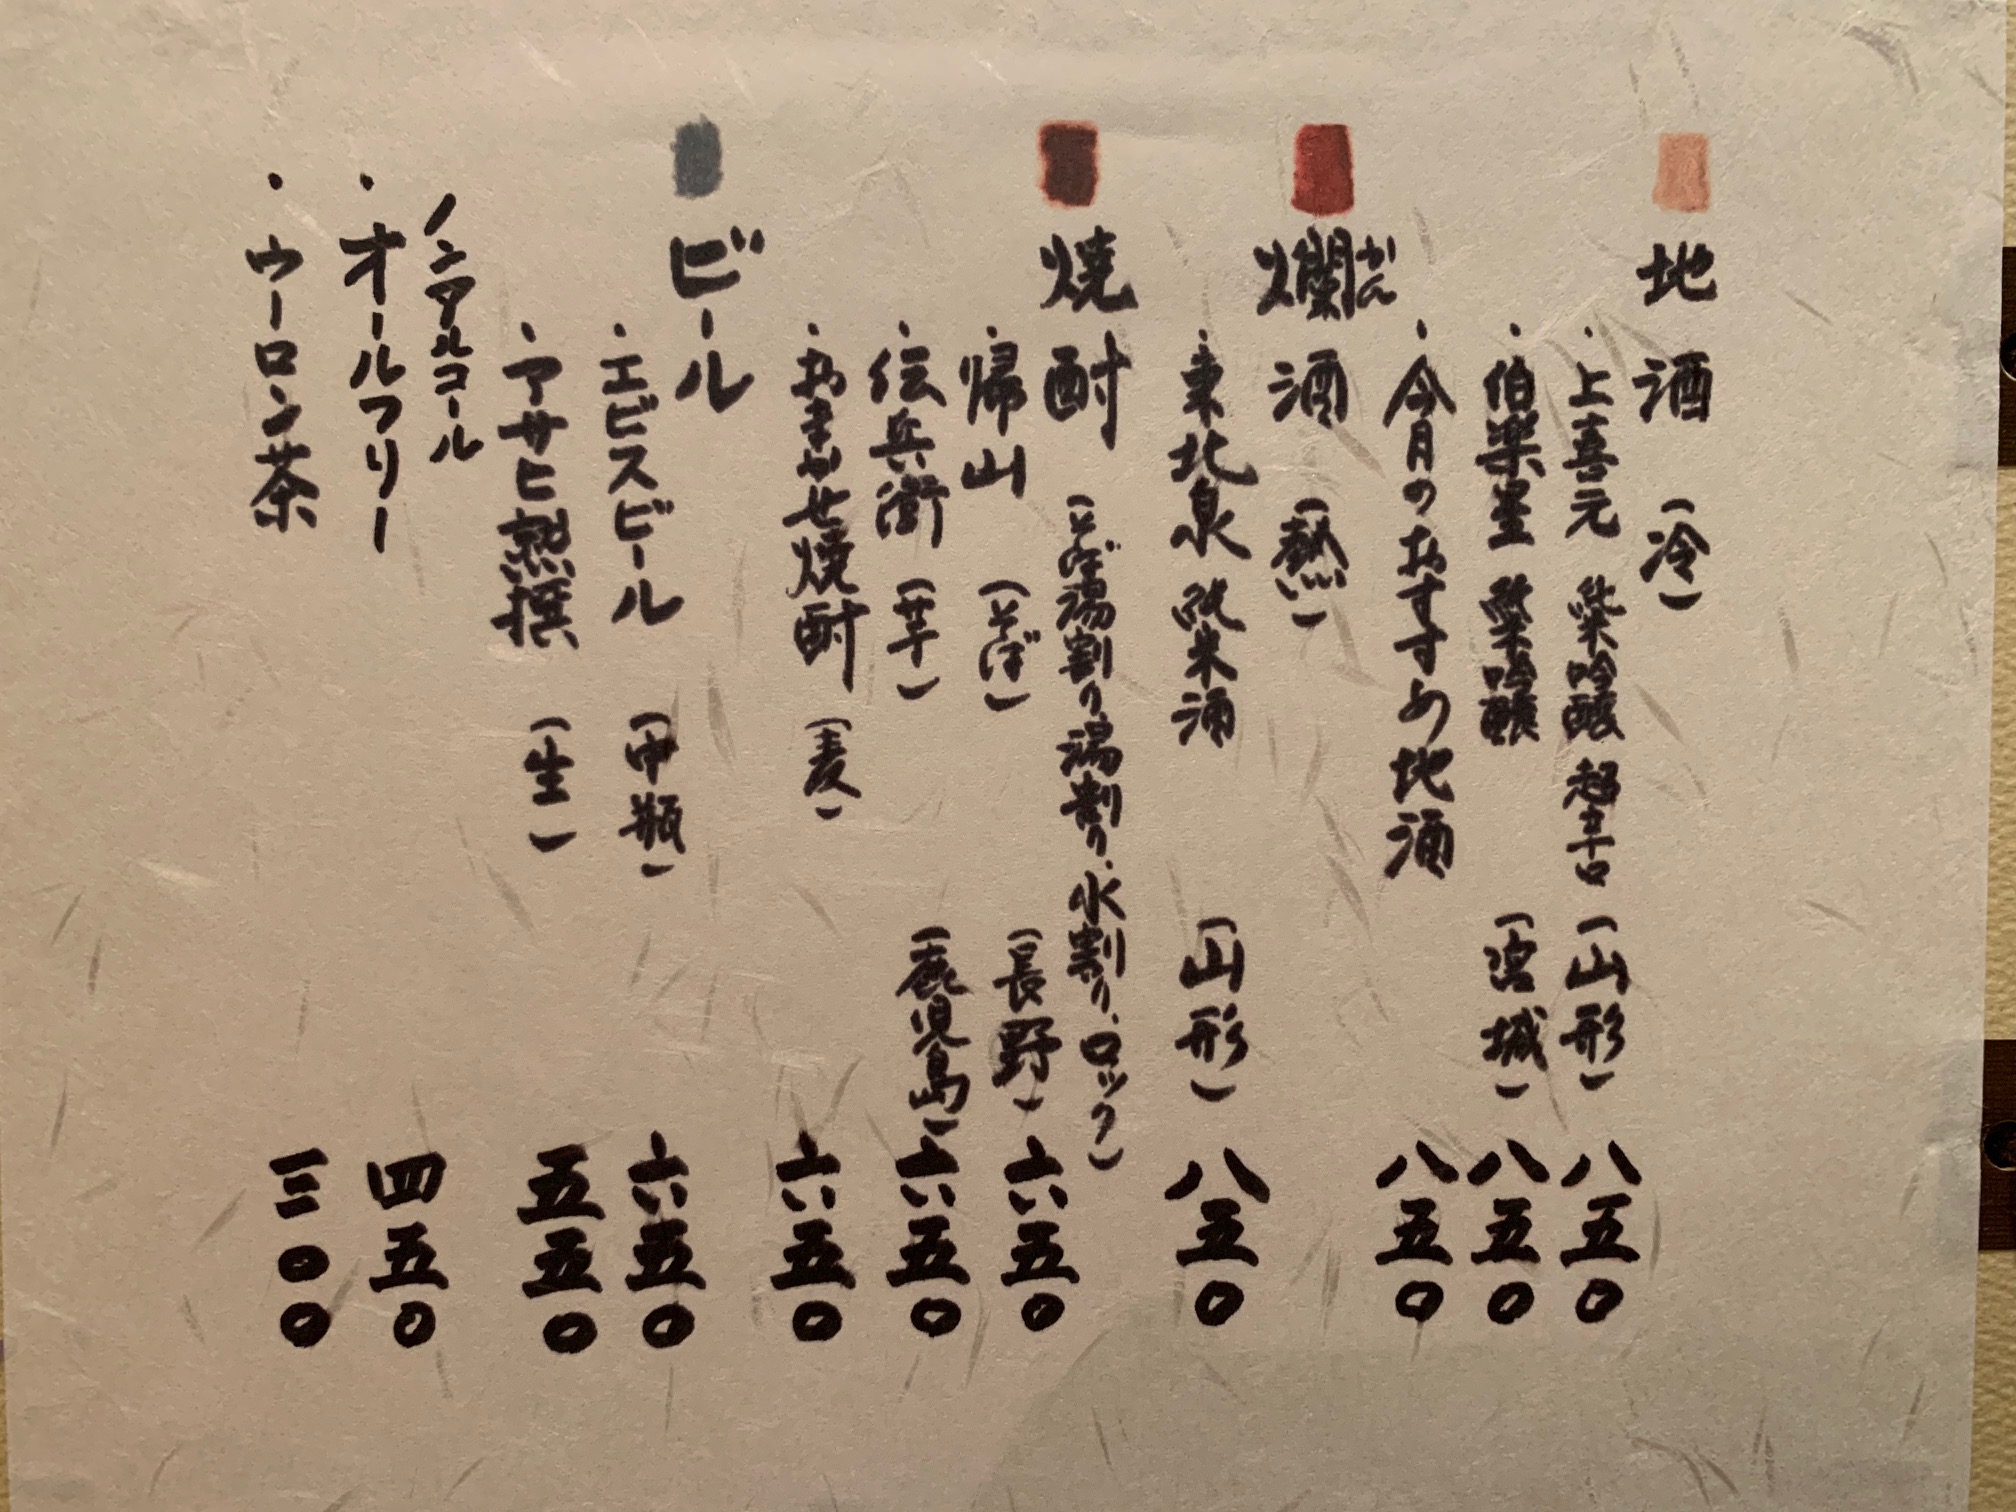 地酒（冷）
・上喜元 純米吟醸 超辛口（山形）八五〇
・伯楽星 純米吟醸（宮城）八五〇
・今月のおすすめ地酒 八五〇
燗酒（熱）
かん
・東北泉 純米酒（山形）八五〇
焼酎（そば湯割り、湯割り、水割り、ロック）
・帰山（そば）（長野）六五〇
・伝兵衛（芋）（鹿児島）六五〇
・おまかせ焼酎（麦）六五〇
ビール
・エビスビール（中瓶）六五〇
・アサヒ熟撰（生）五五〇
ノンアルコール
・オールフリー 四五〇
・ウーロン茶 三〇〇